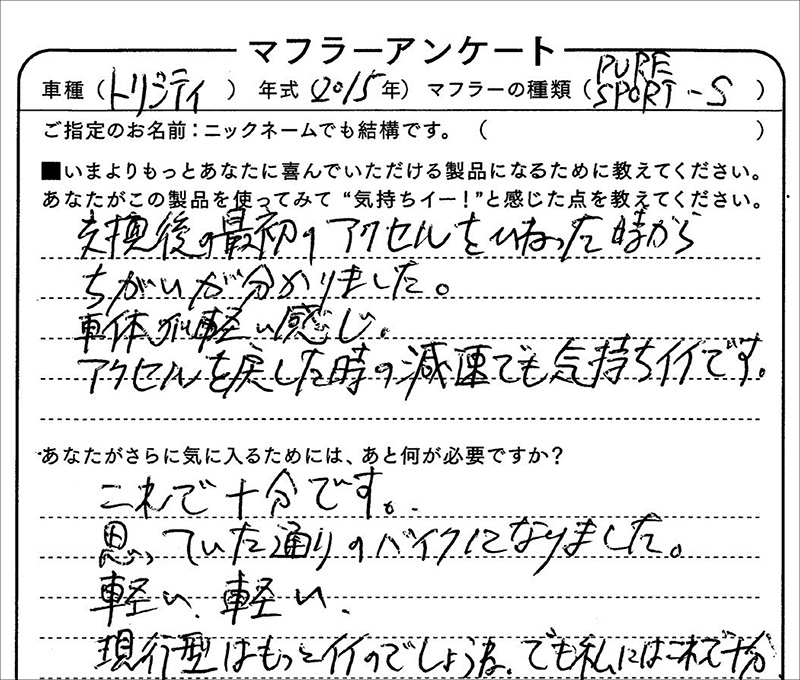 マフラーアンケート
車種（トリシティ） 年式（2015年） マフラーの種類（PURE SPORT-S）
ご指定のお名前：ニックネームでも結構です。（ ）
■いまよりもっとあなたに喜んでいただける製品になるために教えてください。
あなたがこの製品を使ってみて“気持ちイー！”と感じた点を教えてください。
交換後の最初のアクセルをひねった時から
ちがいが分かりました。
車体が軽い感じ。
アクセルを戻した時の減速でも気持ちイイです。
あなたがさらに気に入るためには、あと何が必要ですか？
これで十分です。
思っていた通りのバイクになりました。
軽い、軽い、
現行型はもっとイイのでしょうね、でも私にはこれで十分